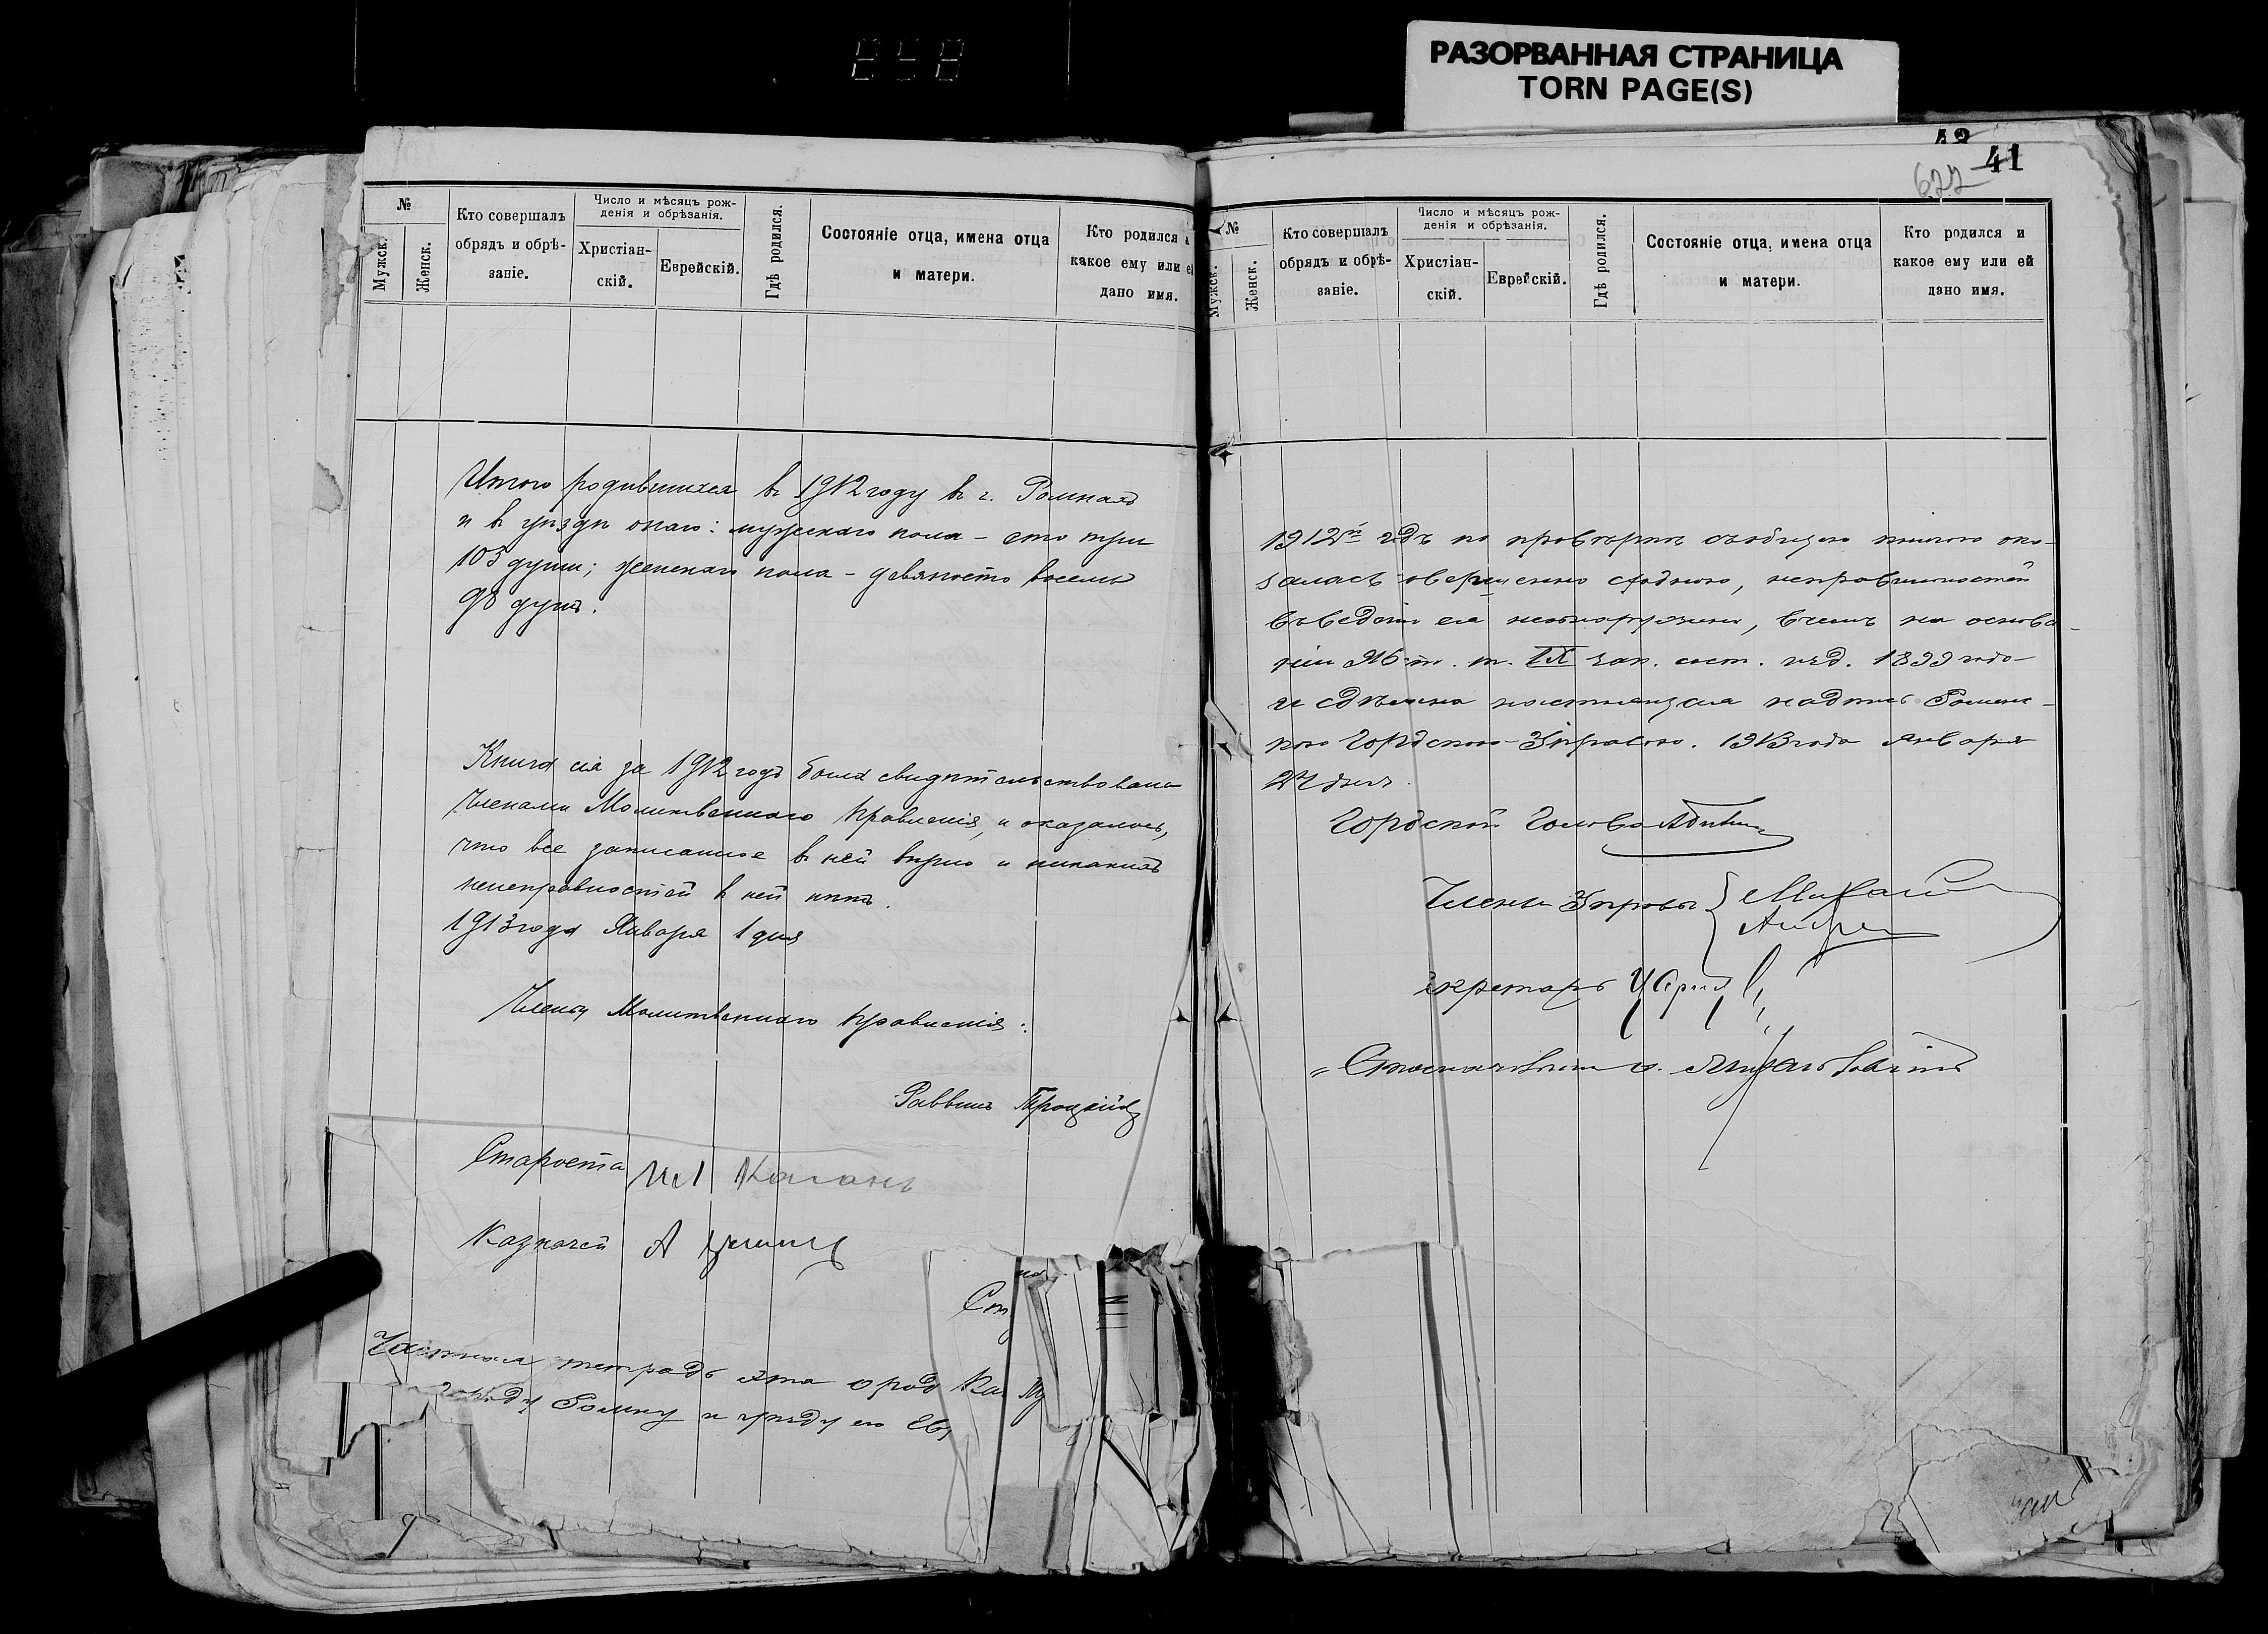 РАЗОРВАННАЯ СТРАНИЦА
TORN PAGE(S)
42
41
622
№
Мужск.
Женск.
Кто совершалъ
обрядъ и обрѣ-
заніе.
Число и мѣсяцъ рож-
денія и обрѣзанія.
Христіан-
скій.
Еврейскій.
Гдѣ родился.
Состояніе отца, имена отца
и матери.
Кто родился и
какое ему или ей
дано имя.
Итого родившихся въ 1912 году въ г. Ромнахъ
и въ уѣздѣ онаго: мужескаго пола - сто три
103 души; женскаго пола - девяносто восемь
98 душъ.
Книга сія за 1912 годъ была свидѣтельствована
Членами Молитвеннаго Правленія, и оказалось,
что все записанное въ ней вѣрно и никакихъ
неисправностей въ ней нѣтъ.
1913 года Января 1 дня
Члены Молитвеннаго Правленія:
Раввинъ Троцкій
Староста Каганъ
Казначей А
Ст
тетрадь эта о род
городу Ромну и уѣзду его Ев
№
Мужск.
Женск.
Кто совершалъ
обрядъ и обрѣ-
заніе.
Число и мѣсяцъ рож-
денія и обрѣзанія.
Христіан-
скій.
Еврейскій.
Гдѣ родился.
Состояніе отца, имена отца
и матери.
Кто родился и
какое ему или ей
дано имя.
1912й годъ по провѣркѣ оказалась
совершенно сходною, неправильностей
въ веденіи ея необнаружено, въ чемъ на основа-
ніи ст. т. IX зак. сост. изд. 1899 года
и сдѣлана настоящая надпись Ромен-
скою Городскою Управою. 1913 года Января
дня.
Городской Голова
Члены Управы
Секретарь